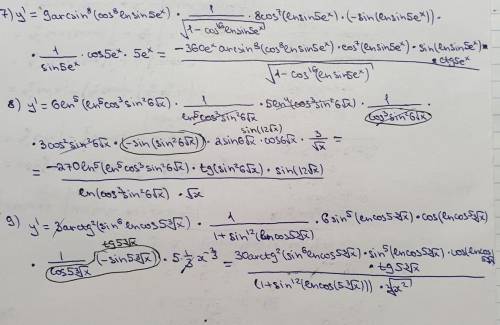 7) y' = 9arcsin⁸(cos⁸ℓnsin5eˣ) · 1/√(1-cos¹⁶ℓnsin5eˣ) · 8cos⁷(ℓnsin5eˣ)·(-sin(ℓnsin5eˣ))·
· 1/sin5eˣ · cos5eˣ · 5eˣ = -360eˣ arcsin⁸(cos⁸ℓnsin5eˣ)·cos⁷(ℓnsin5eˣ)·sin(ℓnsin5eˣ)· ctg5eˣ / √(1-cos¹⁶(ℓnsin5eˣ))
8) y' = 6ℓn⁵(ℓn⁵cos³sin²6√x) · 1/(ℓn⁵cos³sin²6√x) · 5ℓn⁴(cos³sin²6√x) · 1/(cos³sin²6√x) ·
· 3cos²sin²6√x · (-sin(sin²6√x)) · 2sin6√x · cos6√x · 3/√x = sin(12√x)
= -270ℓn⁵(ℓn⁵cos³sin²6√x) · tg(sin²6√x) · sin(12√x) / (ℓn(cos³sin²6√x) · √x)
9) y' = 3arctg²(sin⁶ℓncos5∛x) · 1/(1+sin¹²(ℓncos5∛x)) · 6sin⁵(ℓncos5∛x) · cos(ℓncos5∛x)
tg5∛x
· 1/cos5∛x (-sin5∛x) · 5·1/3 x^(-2/3) = 30arctg²(sin⁶ℓncos5∛x) · sin⁵(ℓncos5∛x) · cos(ℓncos5∛x) · tg5∛x / ((1+sin¹²(ℓncos(5∛x))) · ∛x²)